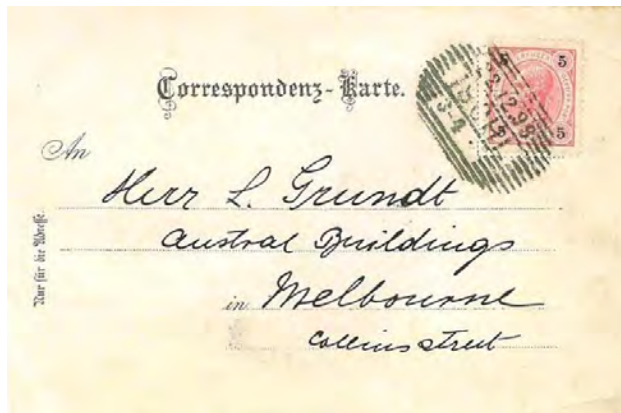 Correspondenz-Karte.
5
5
5
12.98
3-4
An
Herr L. Grundt
Austral Buildings
in Melbourne
Collins street
Nur für die Adresse.